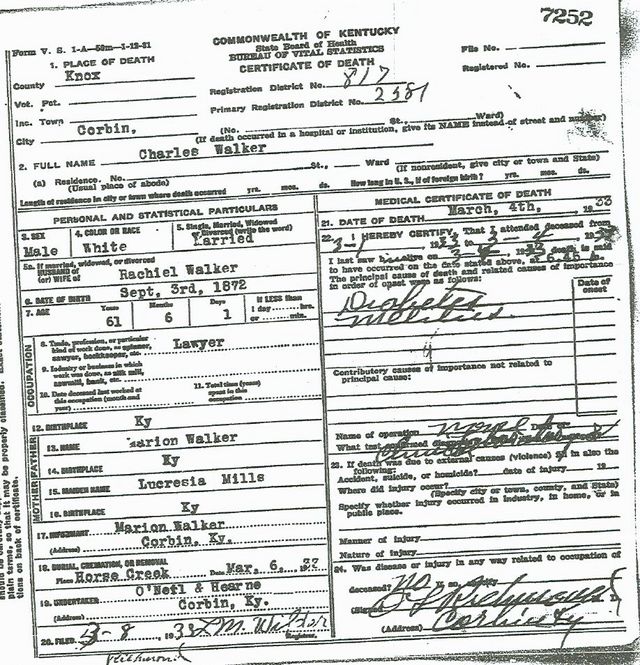 7252
Form V. S. 1-A—50m—1-12-31
COMMONWEALTH OF KENTUCKY
State Board of Health
BUREAU OF VITAL STATISTICS
CERTIFICATE OF DEATH
File No.
Registered No.
1. PLACE OF DEATH
County Knox
Registration District No. 817
Vot. Pct.
Primary Registration District No. 2381
Inc. Town
City Corbin,
(No. St., Ward)
(If death occurred in a hospital or institution, give its NAME instead of street and number)
2. FULL NAME Charles Walker
(a) Residence. No. St., Ward (If nonresident, give city or town and State)
(Usual place of abode)
Length of residence in city or town where death occurred yrs. mos. ds. How long in U. S., if of foreign birth? yrs. mos. ds.
PERSONAL AND STATISTICAL PARTICULARS
3. SEX Male
4. COLOR OR RACE White
5. Single, Married, Widowed
Divorced (write the word)
5a. If married, widowed, or divorced
HUSBAND of
(or) WIFE of Rachiel Walker
6. DATE OF BIRTH Sept, 3rd, 1872
7. AGE Years Months Days If LESS than
61 6 1 1 day hrs.
or min.
OCCUPATION
8. Trade, profession, or particular
kind of work done, as spinner,
sawyer, bookkeeper, etc. Lawyer
9. Industry or business in which
work was done, as silk mill,
sawmill, bank, etc.
10. Date deceased last worked at
this occupation (month and
year)
11. Total time (years)
spent in this
occupation
12. BIRTHPLACE Ky
FATHER
13. NAME Marion Walker
14. BIRTHPLACE Ky
MOTHER
15. MAIDEN NAME Lucresia Mills
16. BIRTHPLACE Ky
17. INFORMANT Marion Walker
(Address) Corbin, Ky.
18. BURIAL, CREMATION, OR REMOVAL
Place Horse Creek Date Mar, 6, 19
19. UNDERTAKER O'Neil & Hearne
(Address) Corbin, Ky.
20. FILED 3-8, 1933 Registrar.
MEDICAL CERTIFICATE OF DEATH
21. DATE OF DEATH March, 4th, 1933
22. I HEREBY CERTIFY, That I attended deceased from
I last saw alive on death is said
to have occurred on the date stated above, at 6.45
The principal cause of death and related causes of importance
in order of onset were as follows:
Date of
onset
Diabetes
Mellitus
Contributory causes of importance not related to
principal cause:
Name of operation none Date of
What test confirmed diagnosis?
23. If death was due to external causes (violence) fill in also the
following:
Accident, suicide, or homicide? date of injury 19
Where did injury occur?
(Specify city or town, county, and State)
Specify whether injury occurred in industry, in home, or in
public place.
Manner of injury
Nature of injury
24. Was disease or injury in any way related to occupation of
deceased? no If so, specify
(Signed)
(Address) Corbin Ky
plain terms, so that it may be properly classified.
tions on back of certificate.